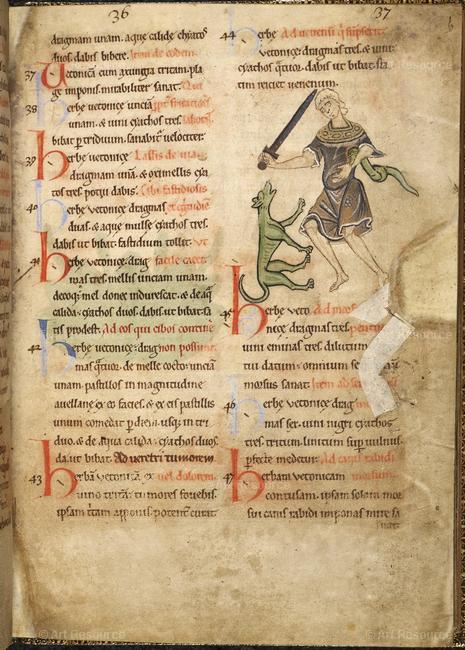 36
37
dragmam unam. aque calide cyatos
duos. dabis bibere. Item de eodem.
37 Vetonica cum axungia tritam. pla
ge imponis. mirabiliter sanat.
38 herbe vetonice uncia
unam. & uini cyathos tres.
bibat per triduum. sanabitur velociter.
39 herbe vetonice Lassis de uia
dragmam unam. & oximellis cya
tos tres. potui dabis. Cibi fastidiosis
40 herbe vetonice dragmas
duas. & aque mulse cyathos tres.
dabis ut bibat. fastidium tollit.
41 herbe vetonice drag facile
mas tres. mellis unciam unam.
decoque mel donec indurescat. & de aqua
calida cyathos duos dabis ut bibat. sa
tis prodest. Ad eos qui cibos contine
42 herbe vetonice drag non possunt
mas quatuor. de melle cocto unciam
unam. pastillos in magnitudine
auellane ex eo facies. & ex eis pastillis
unum comedat per diem. usque in tri
duo. & de aqua calida cyathos duos
da ut bibat. Ad veretri tumorem
43 herba vetonica ex uel dolorem
uino trita. tumores fouebis.
ipsam tritam apponis. potenter curat
44 herbe
vetonice dragmas tres. & uini
cyathos quatuor. dabis ut bibat. sta
tim reiciet venenum.
45 herbe veto
nice dragmas tres
uini eminas tres dilutum
tui datum. omnium
morsus sanat. Item
46 herbe vetonice drag
mas tres. uini nigri cyathos
tres. tritum. linitum super uulnus.
perfecte medetur. Ad canis rabidi
47 herbam vetonicam morsum
contusam. ipsam solam mor
sui canis rabidi imponas mire sa
nat.
© Art Resource